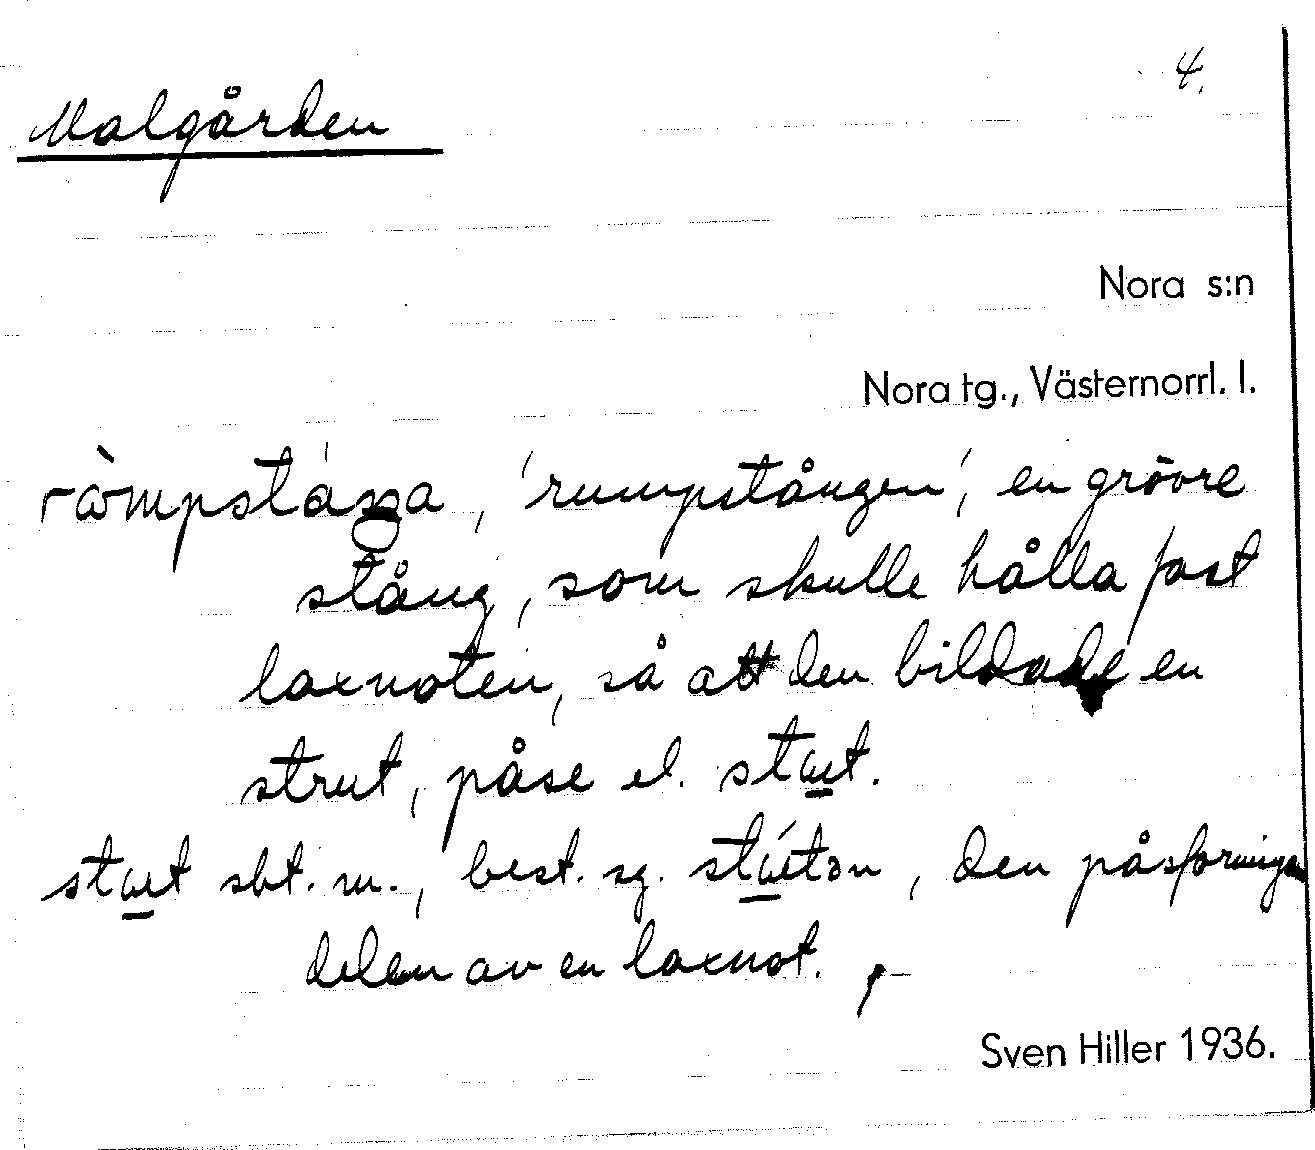 4.
Malgården
Nora s:n
Nora tg., Västernorrl. l.
, 'rumpstången', en grövre
stång, som skulle hålla fast
laxnoten, så att den bildade en
strut, påse el. stut.
stut sbt. m., best. sg. , den påsformiga
delen av en laxnot.
Sven Hiller 1936.